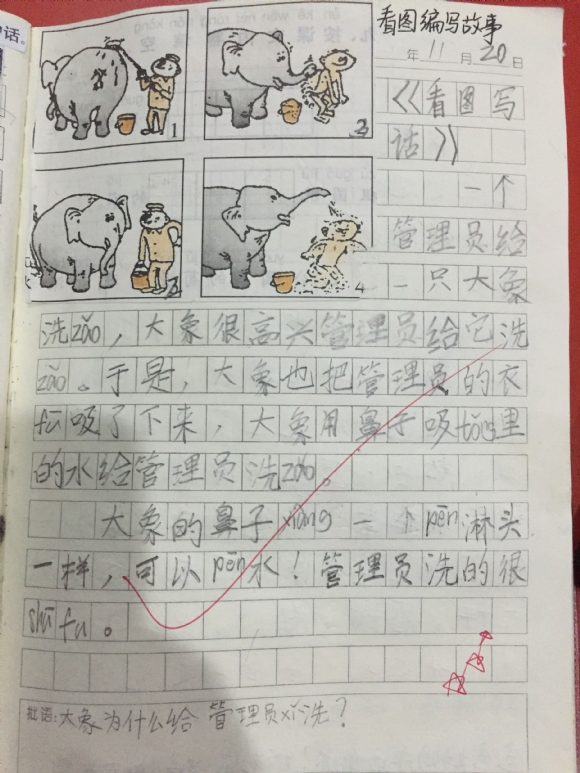 话。
看图编写故事
年 11 月 20 日
1
2
3
4
《看图写
话》
一个
管理员给
一只大象
洗zǎo，大象很高兴管理员给它洗
zǎo。于是，大象也把管理员的衣
fu吸了下来，大象用鼻子吸tǒng里
的水给管理员洗zǎo。
大象的鼻子xiàng一个pēn淋头
一样，可以pēn水！管理员洗的很
shū fu。
批语:大象为什么给管理员xǐ洗？